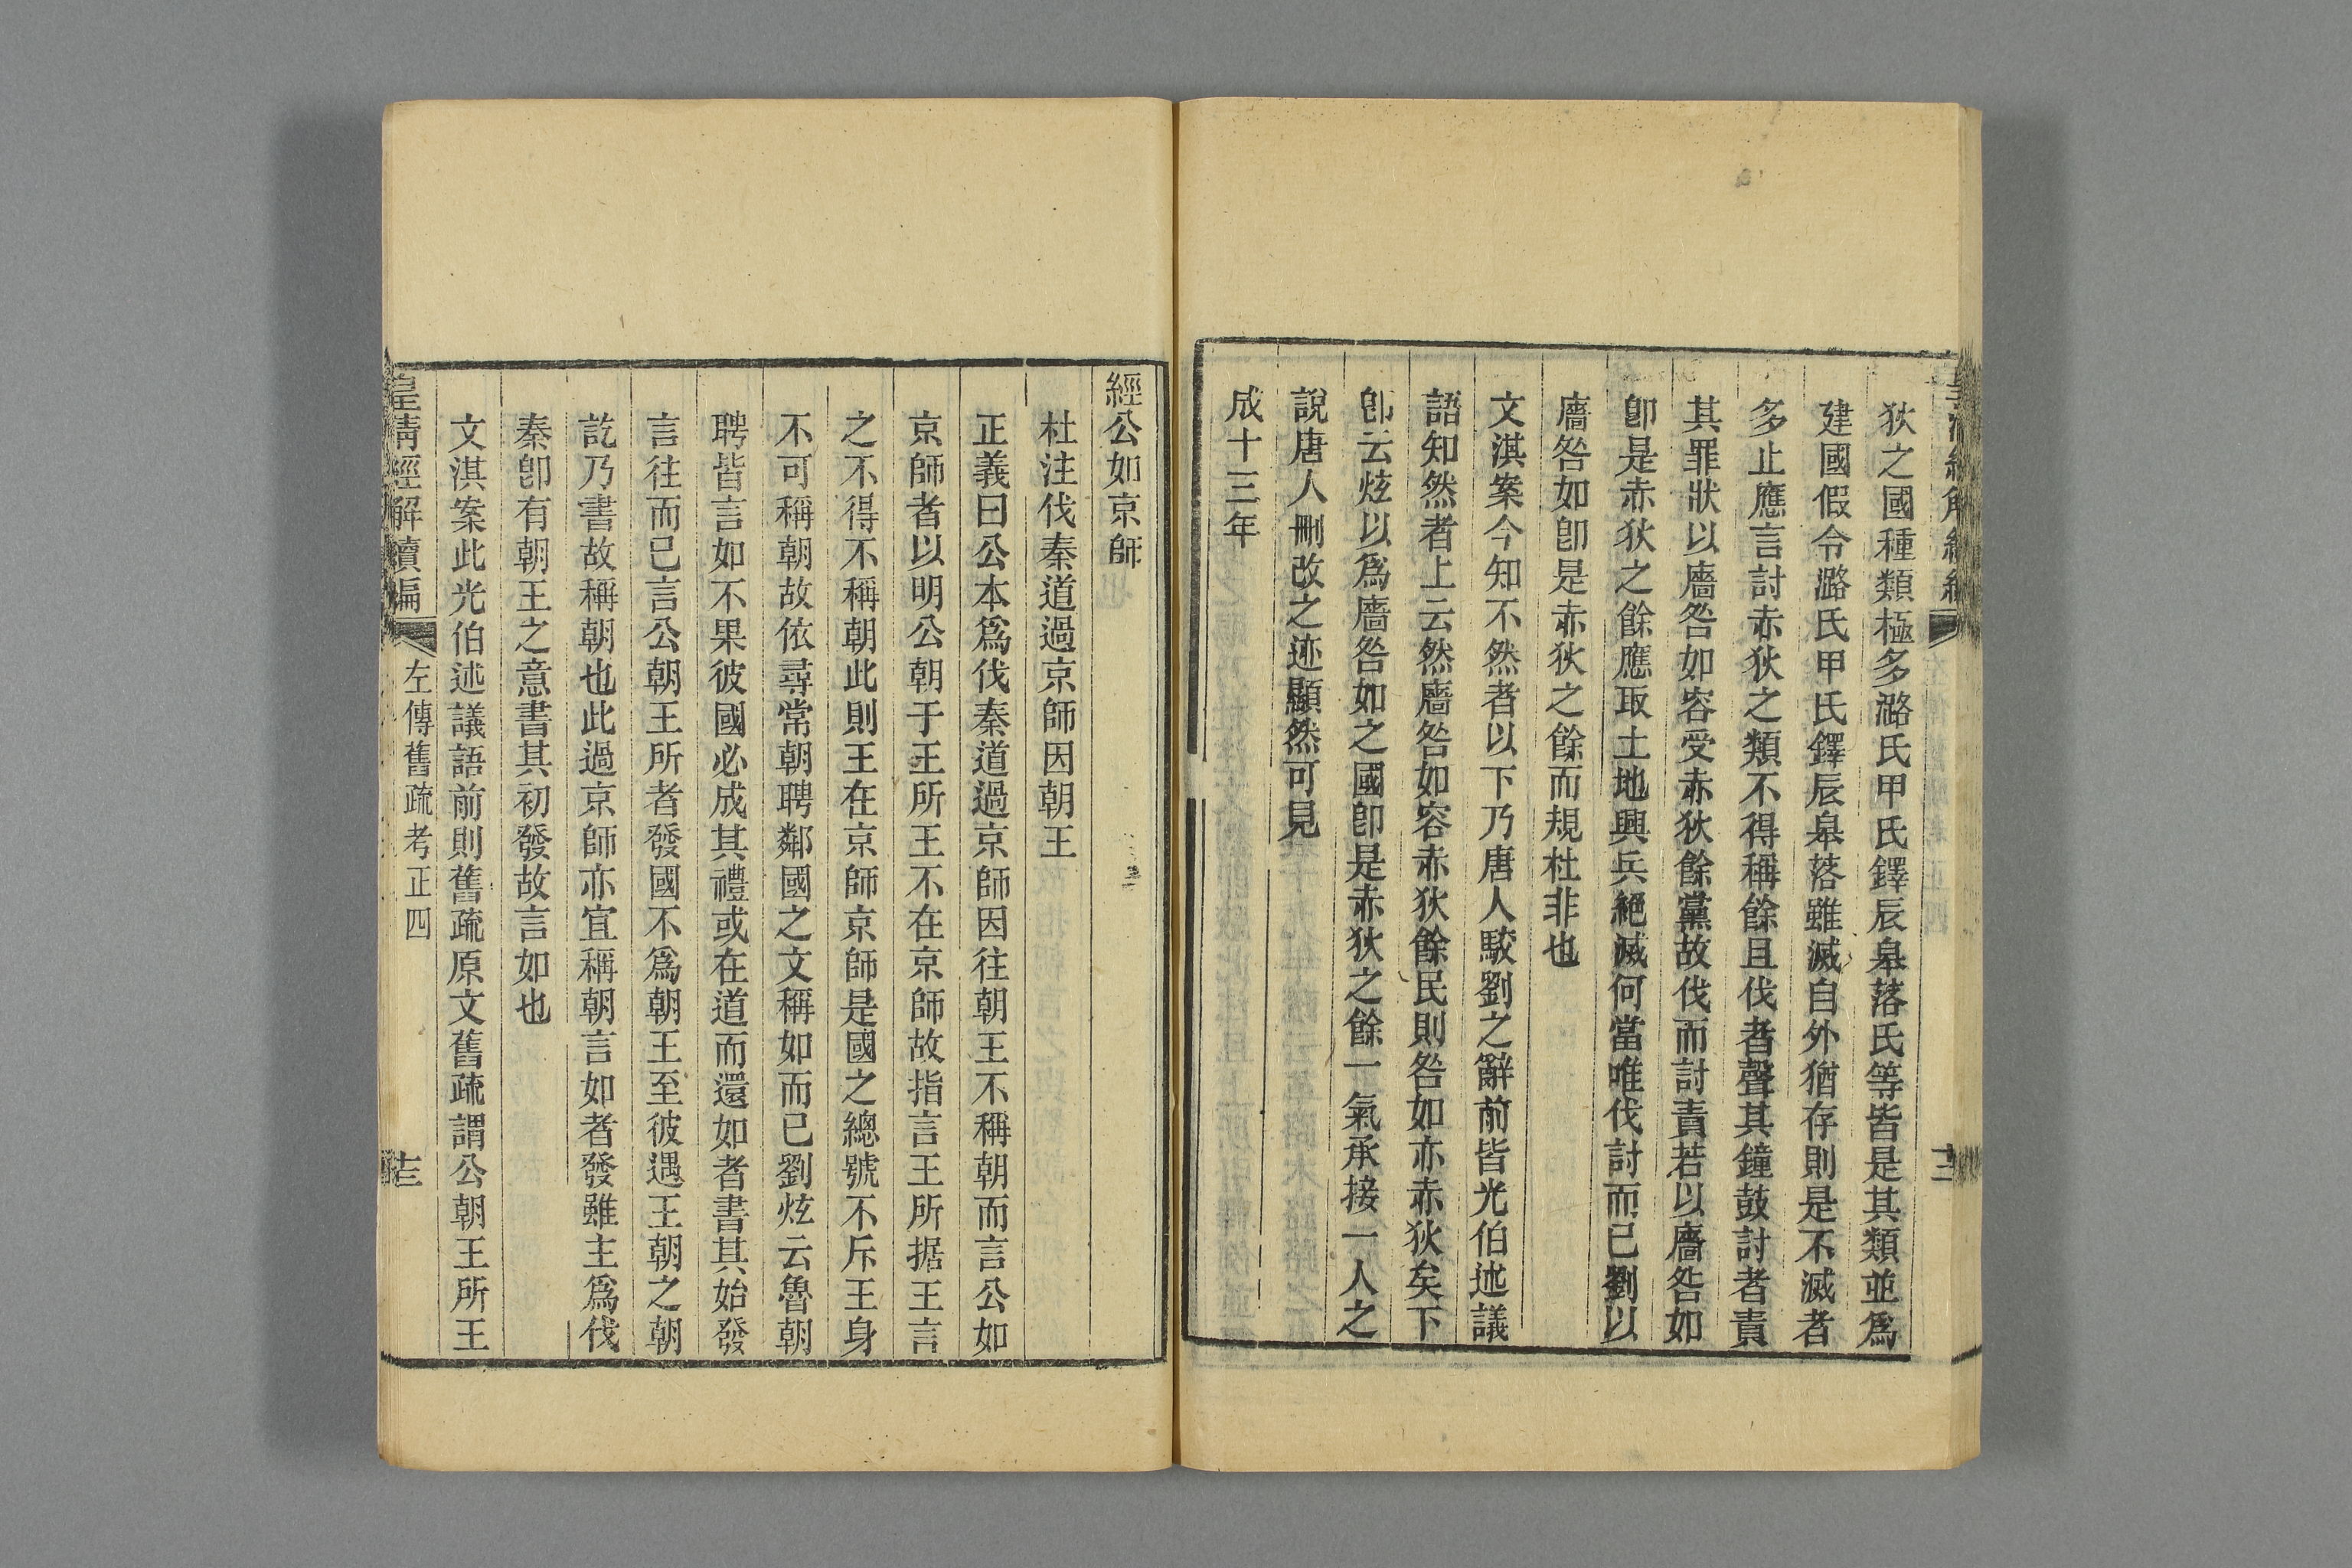 狄之國種類極多潞氏甲氏鐸辰皋落氏等皆是其類並爲
建國假令潞氏甲氏鐸辰皋落雖滅自外猶存則是不滅者
多止應言討赤狄之類不得稱餘且伐者聲其鐘鼓討者責
其罪狀以廧咎如容受赤狄餘黨故伐而討責若以廧咎如
卽是赤狄之餘應取土地興兵絕滅何當唯伐討而已劉以
廧咎如卽是赤狄之餘而規杜非也
文淇案今知不然者以下乃唐人駮劉之辭前皆光伯述議
語知然者上云然廧咎如容赤狄餘民則咎如亦赤狄矣下
卽云炫以爲廧咎如之國卽是赤狄之餘一氣承接一人之
說唐人刪改之迹顯然可見
成十三年
經公如京師
杜注伐秦道過京師因朝王
正義曰公本爲伐秦道過京師因往朝王不稱朝而言公如
京師者以明公朝于王所王不在京師故指言王所據王言
之不得不稱朝此則王在京師京師是國之總號不斥王身
不可稱朝故依尋常朝聘鄰國之文稱如而已劉炫云魯朝
聘皆言如不果彼國必成其禮或在道而還如者書其始發
言往而已言公朝王所者發國不爲朝王至彼遇王朝之朝
訖乃書故稱朝也此過京師亦宜稱朝言如者發雖主爲伐
秦卽有朝王之意書其初發故言如也
文淇案此光伯述議語前則舊疏原文舊疏謂公朝王所王
皇清經解續編 左傳舊疏考正四 十三